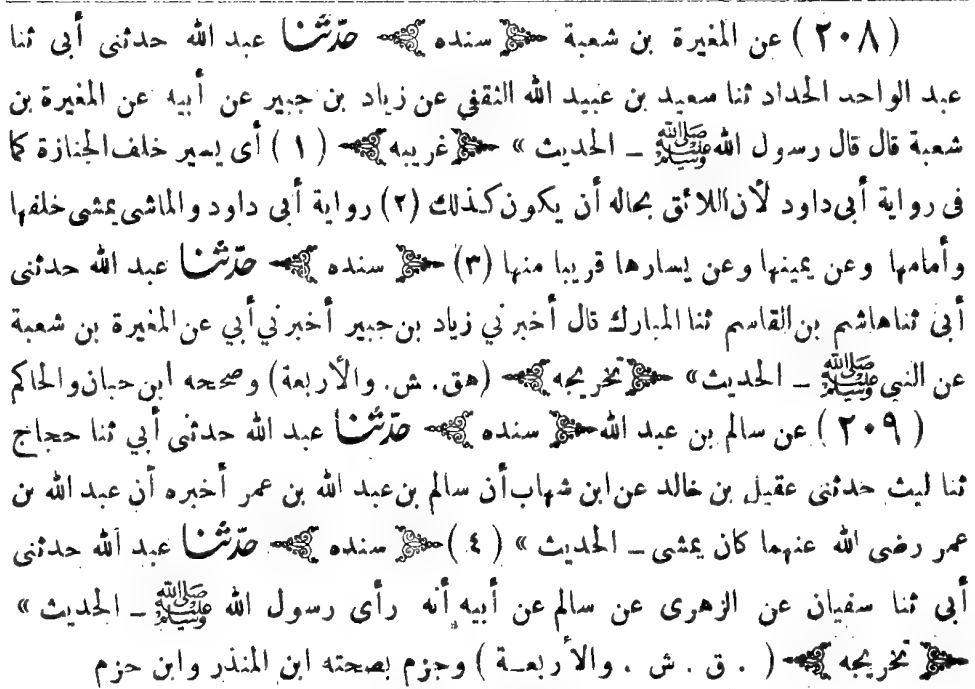 (٢٠٨) عن المغيرة بن شعبة ﴿ سنده ﴾ حدّثنا عبد الله حدثنى أبى ثنا
عبد الواحد الحداد ثنا سعيد بن عبيد الله الثقفي عن زياد بن جبير عن أبيه عن المغيرة بن
شعبة قال قال رسول الله ﷺ ــ الحديث » ﴿ غريبه ﴾ (١) أى يسير خلف الجنازة كما
فى رواية أبى داود لأن اللائق بحاله أن يكون كذلك (٢) رواية أبى داود والماشى يمشى خلفها
وأمامها وعن يمينها وعن يسارها قريبا منها (٣) ﴿ سنده ﴾ حدّثنا عبد الله حدثنى
أبى ثنا هاشم بن القاسم ثنا المبارك قال أخبرني زياد بن جبير أخبرني أبي عن المغيرة بن شعبة
عن النبي ﷺ ــ الحديث» ﴿ تخريجه ﴾ (هق. ش. والأربعة) وصححه ابن حبان والحاكم
(٢٠٩) عن سالم بن عبد الله ﴿ سنده ﴾ حدّثنا عبد الله حدثنى أبي ثنا حجاج
ثنا ليث حدثنى عقيل بن خالد عن ابن شهاب أن سالم بن عبد الله بن عمر أخبره أن عبد الله بن
عمر رضى الله عنهما كان يمشى ــ الحديث » (٤) ﴿ سنده ﴾ حدّثنا عبد الله حدثنى
أبى ثنا سفيان عن الزهرى عن سالم عن أبيه أنه رأى رسول الله ﷺ ــ الحديث »
﴿ تخريجه ﴾ ( . ق . ش . والأربعة ) وجزم بصحته ابن المنذر وابن حزم